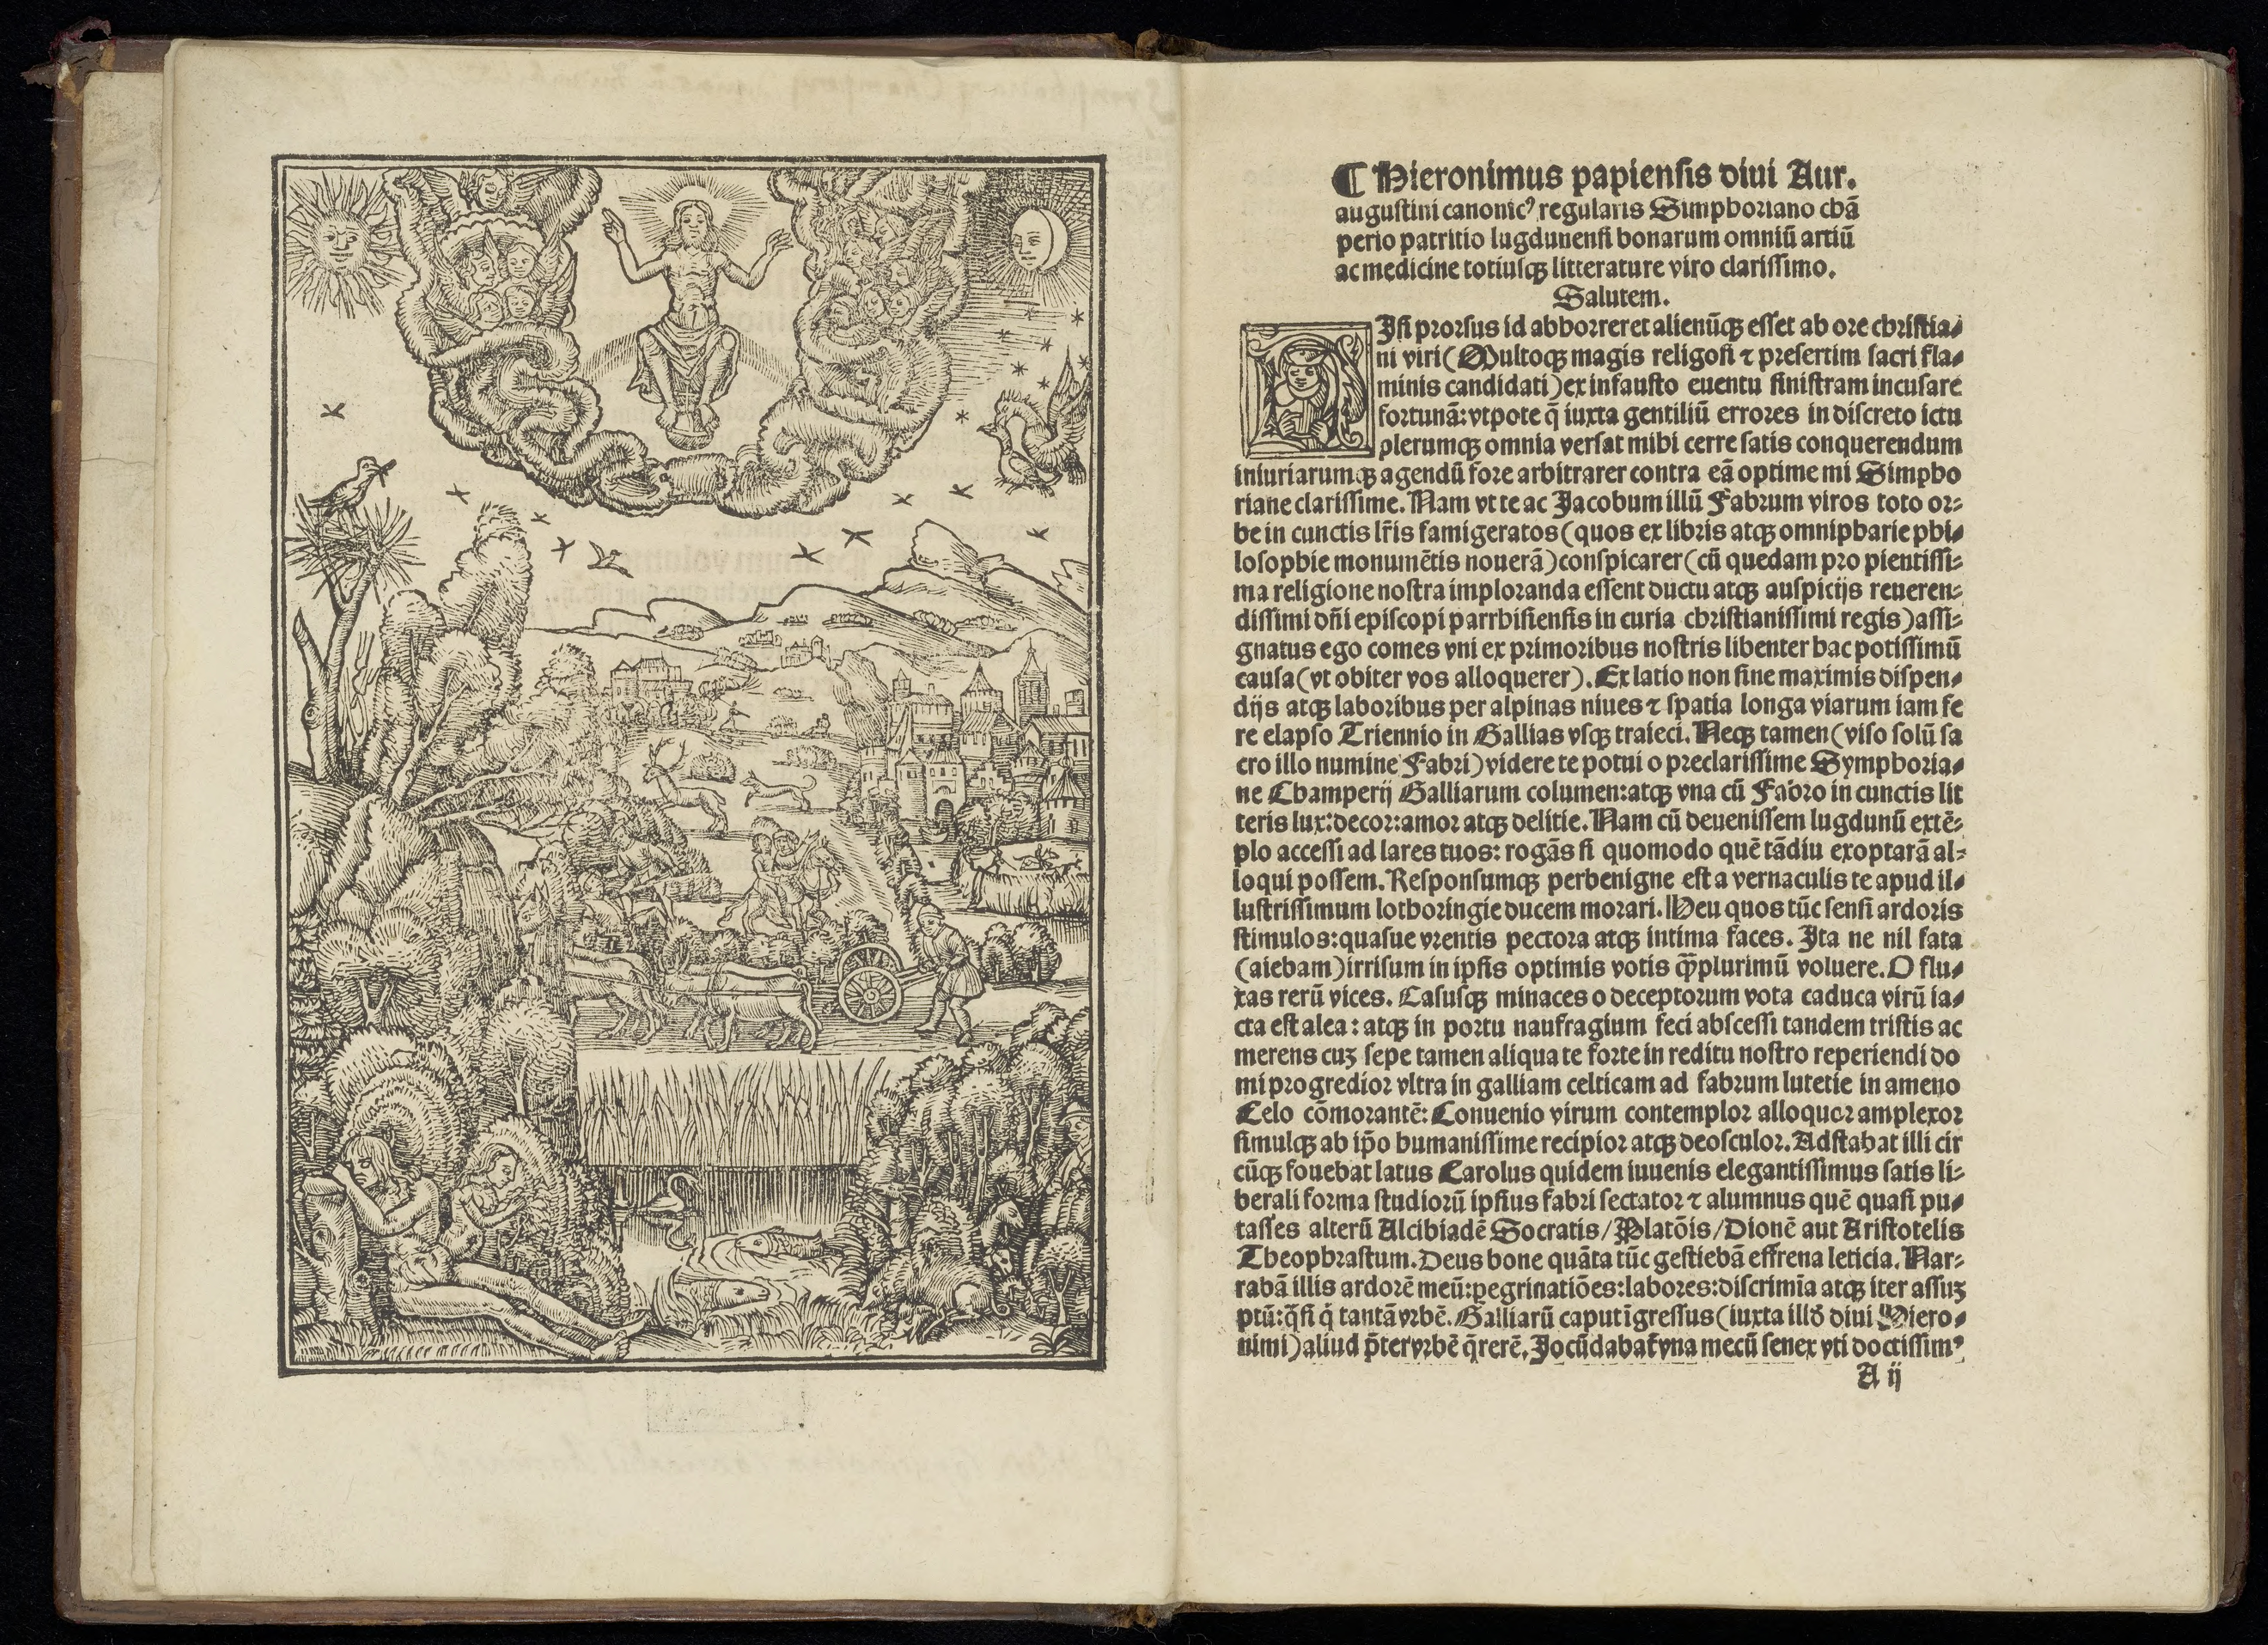 ¶ Hieronimus papiensis diui Aur.
augustini canonicꝰ regularis Simphoriano chā
perio patritio lugdunensi bonarum omniū artiū
ac medicine totiusqȝ litterature viro clarissimo.
Salutem.
Nisi prorsus id abhorreret alienūqȝ esset ab ore christia-
ni viri (Multoqȝ magis religosi ⁊ presertim sacri fla-
minis candidati) ex infausto euentu sinistram incusare
fortunā: vtpote q̄ iuxta gentiliū errores in discreto ictu
plerumqȝ omnia versat mihi cerre satis conquerendum
iniuriarumqȝ agendū fore arbitrarer contra eā optime mi Simpho
riane clarissime. Nam vt te ac Jacobum illū Fabrum viros toto or-
be in cunctis lr̄is famigeratos (quos ex libris atqȝ omnipharie phi-
losophie monumētis nouerā) conspicarer (cū quedam pro pientissi-
ma religione nostra imploranda essent ductu atqȝ auspicijs reueren-
dissimi dn̄i episcopi parrhisiensis in curia christianissimi regis) assi-
gnatus ego comes vni ex primoribus nostris libenter hac potissimū
causa (vt obiter vos alloquerer). Ex latio non sine maximis dispen-
dijs atqȝ laboribus per alpinas niues ⁊ spatia longa viarum iam fe
re elapso Triennio in Gallias vsqȝ traieci. Neqȝ tamen (viso solū sa
cro illo numine Fabri) videre te potui o preclarissime Symphoria-
ne Champerij Galliarum columen: atqȝ vna cū Fabro in cunctis lit
teris lux: decor: amor atqȝ delitie. Nam cū deuenissem lugdunū extē-
plo accessi ad lares tuos: rogās si quomodo quē tādiu exoptarā al-
loqui possem. Responsumqȝ perbenigne est a vernaculis te apud il-
lustrissimum lothoringie ducem morari. Heu quos tūc sensi ardoris
stimulos: quasue vrentis pectora atqȝ intima faces. Ita ne nil fata
(aiebam) irrisum in ipsis optimis votis qȝ̄plurimū voluere. O flu-
xas rerū vices. Casusqȝ minaces o deceptorum vota caduca virū ia-
cta est alea: atqȝ in portu naufragium feci abscessi tandem tristis ac
merens cuȝ sepe tamen aliqua te forte in reditu nostro reperiendi do
mi progredior vltra in galliam celticam ad fabrum lutetie in ameno
Celo cōmorantē: Conuenio virum contemplor alloquor amplexor
simulqȝ ab ip̄o humanissime recipior atqȝ deosculor. Adstabat illi cir
cūqȝ fouebat latus Carolus quidem iuuenis elegantissimus satis li-
berali forma studiorū ipsius fabri sectator ⁊ alumnus quē quasi pu-
tasses alterū Alcibiadē Socratis / Platōis / Dionē aut Aristotelis
Theophrastum. Deus bone quāta tūc gestiebā effrena leticia. Nar-
rabā illis ardorē meū: pegrinatiōes: labores: discrimīa atqȝ iter assuȝ
ptū: q̄si q̇ tantā vrbē. Galliarū caput īgressus (iuxta illđ diui Hiero-
nimi) aliud p̄ter vrbē q̄rerē. Jocūdabat̄ vna mecū senex vti doctissimꝰ
A ij